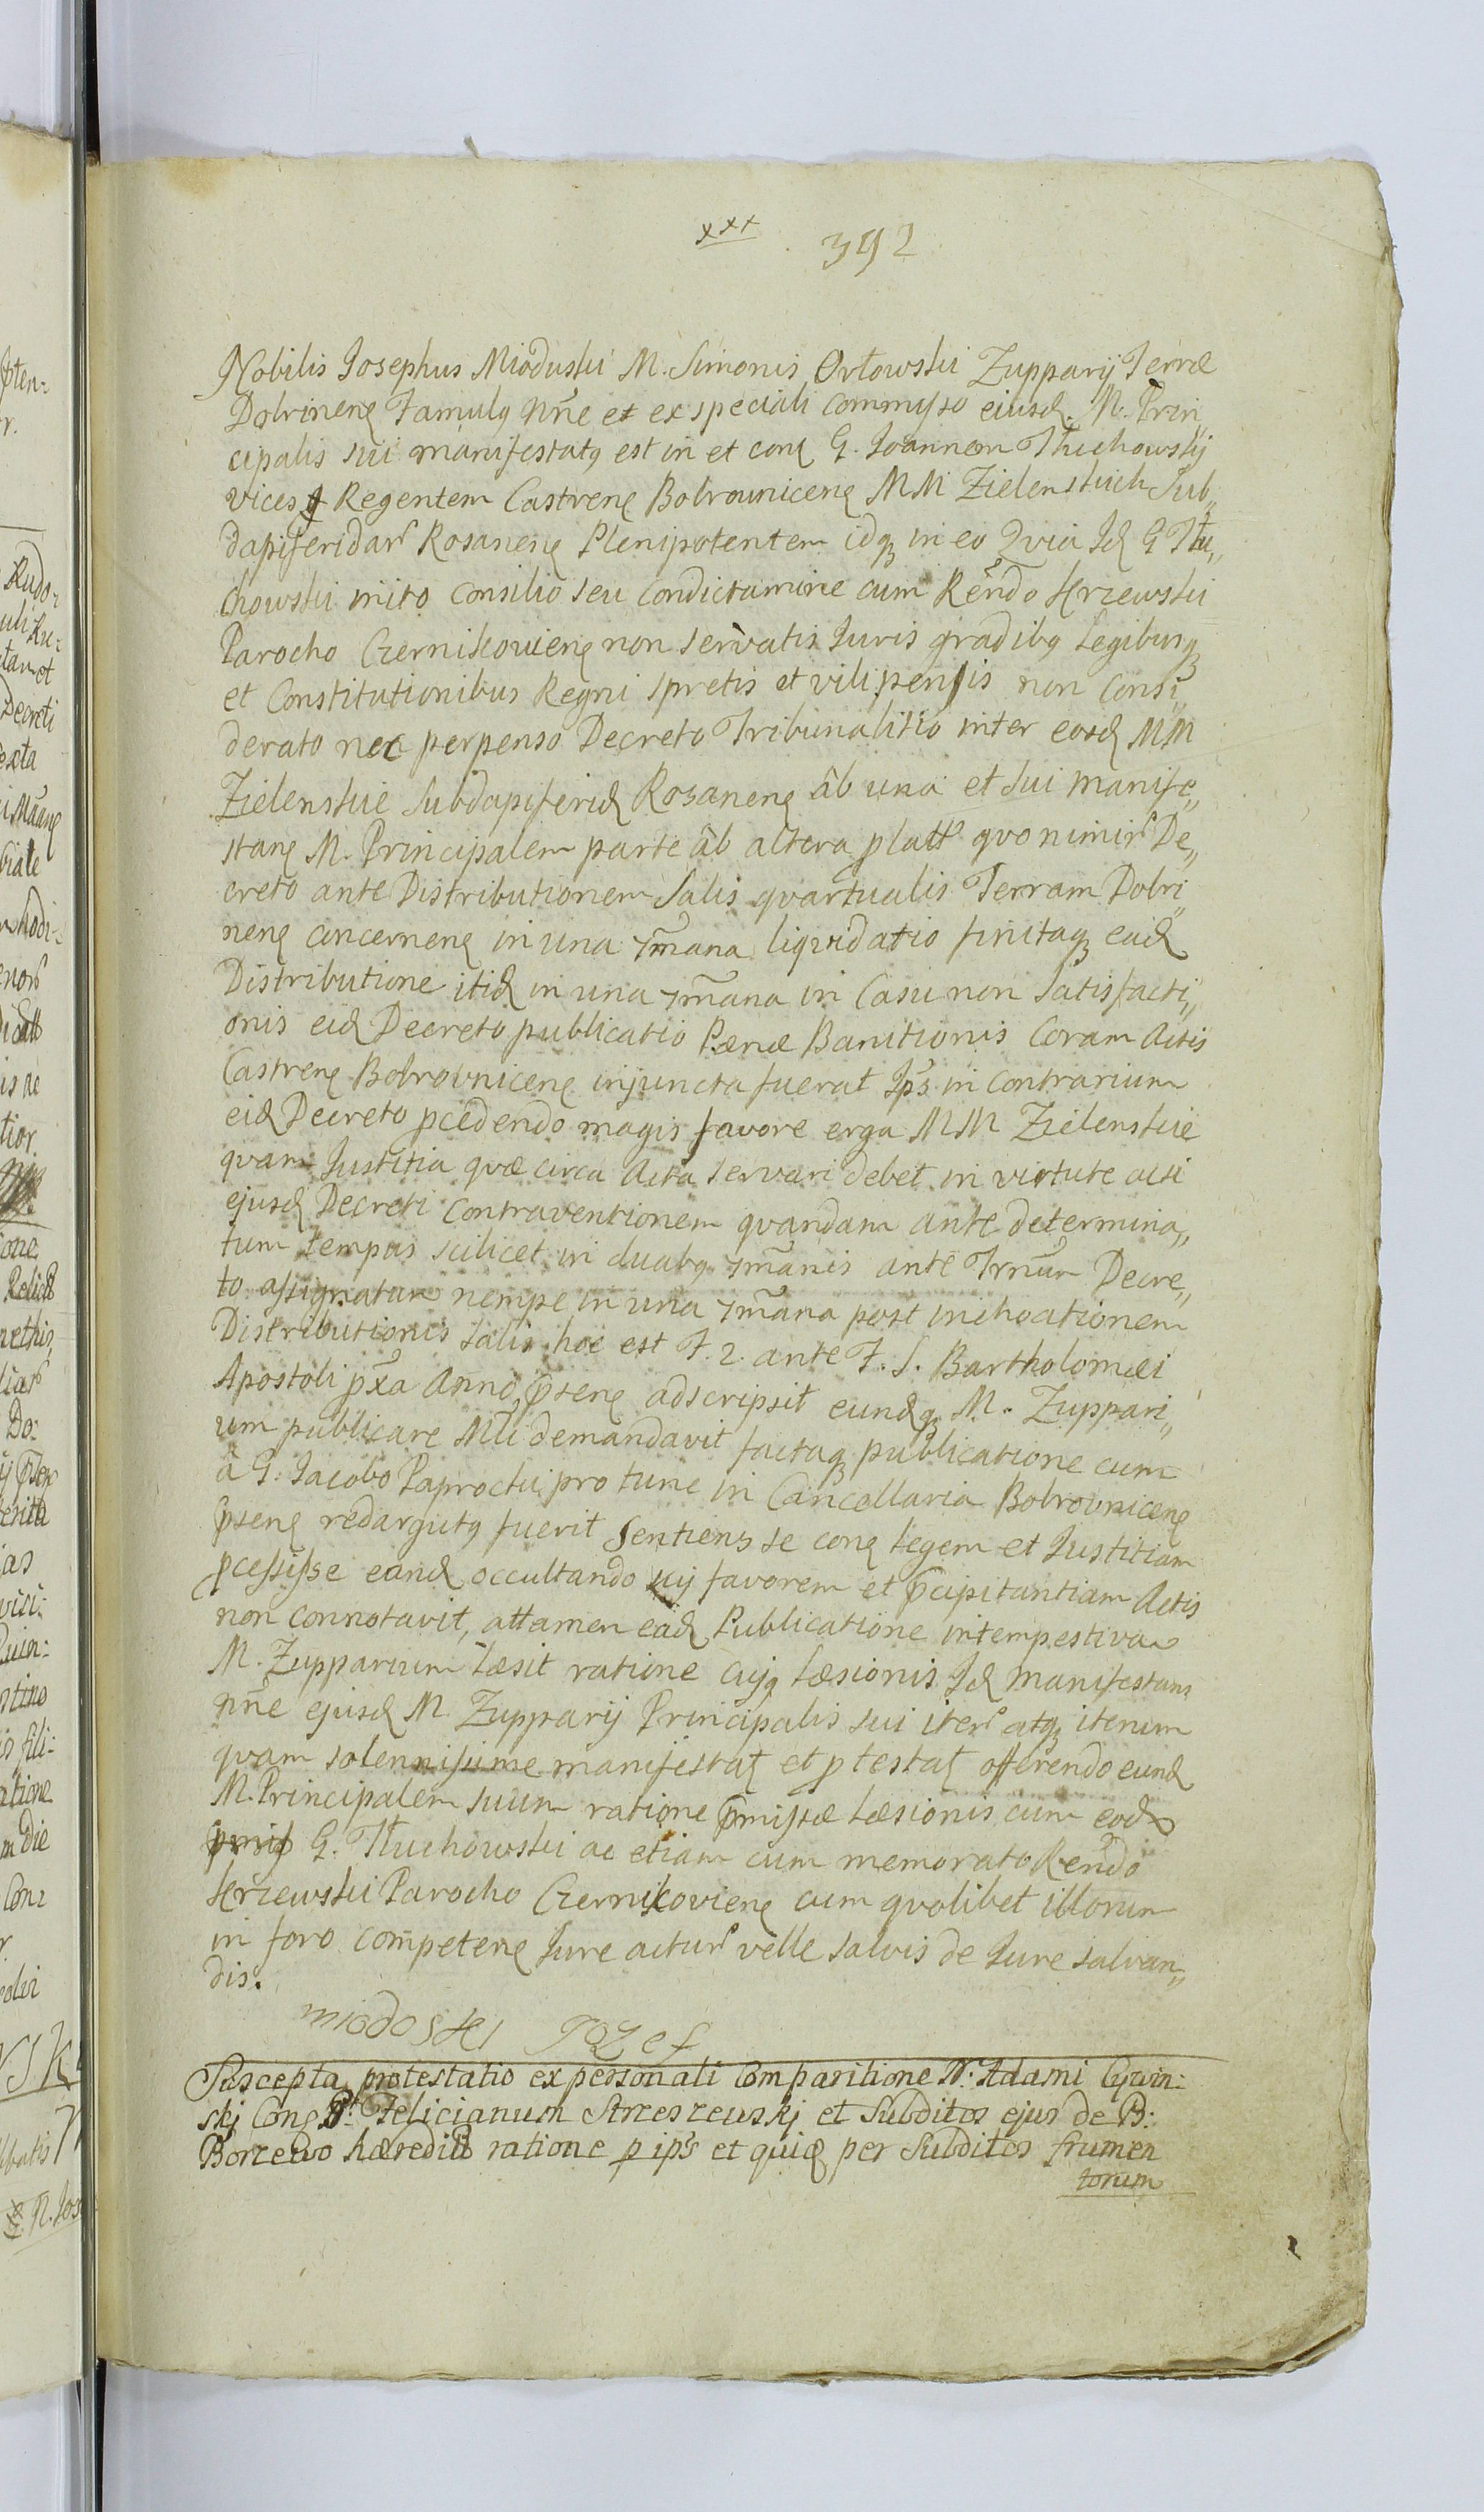 xxx 392
Nobilis Josephus Mioduski M. Simonis Orłowski Zupparij Terræ
Dobrinen Famulq nne et ex speciali commisso eiusd. M. Prin„
cipalis sui manifestatq est in et con G. Joannem Tłuchowskij
vices Regentem Castren Bobrownicen MM Zielenskich Sub„
dapiferidar Rosanen Plenipotentem idq in eo Qvia Id G Tłu„
chowski inito consilio seu condictamine cum Rendo Skrzewski
Parocho Czernikowien non servatis Juris gradibq Legibusq
et Constitutionibus Regni spretis et vilipensis non consi„
derato nec perpenso Decreto Tribunalitio inter eosd MM
Zielenskie Subdapiferid Rozanen ab una et sui manife„
stan M. Principalem parte ab altera platt qvo nimir De„
creto ante Distributionem Salis qvartualis Terram Dobri„
nen concernen in una 7mana liqvidatio finitaq ead
Distributione itid in una 7mana in Casu non satisfacti„
onis eid Decreto publicatio Pænæ Banitionis Coram Actis
Castren Bobrovnicen injuncta fuerat Ips in contrarium
eid Decreto pcedendo magis favore erga MM Zielenskie
qvam Justitia qvæ circa Acta servari debet in virtute acsi
ejusd Decreti contraventionem qvandam ante determina„
tum tempus scilicet in duabq 7manis ante Trnum Decre„
to assignatum nempe in una 7mana post inchoationem
Distributionis Salis hoc est F. 2. ante F. S. Bartholomæi
Apostoli pxa Anno psen adscripsit eundq M. Zuppari„
um publicare Mli demandavit factaq publicatione cum
à G. Jacobo Paprocki pro tunc in Cancellaria Bobrovnicen
psen redargutq fuerit Sentiens se con Legem et Justitiam
pcessisse eand occultando sui favorem et pcipitantiam Actis
non connotavit, attamen ead Publicatione intempestiva
M. Zupparium Læsit ratione cujq Læsionis Id Manifestans
nne ejusd M Zupparij Principalis sui iter atq iterum
qvam solennissime manifestat et ptestat offerendo eund
M. Principalem suum ratione pmissæ Læsionis cum eod
G. Tłuchowski ac etiam cum memorato Rendo
Skrzewski Parocho Czernikovien cum qvolibet illorum
in foro competen Jure actur velle salvis de Jure salvan„
dis.
miodoski Jozef
Suscepta protestatio ex personali Comparitione N. Adami Cywin:
skj Con G. Felicianum Strzeszewskj et Subditos ejus de B:
Borzewo hæredit ratione p ips et quid per Subditos frumen
torum